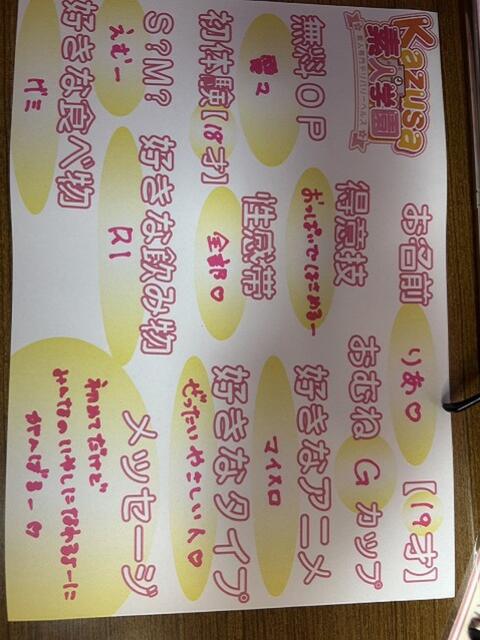 Kazusa
素人学園
お名前 りあ♡ 【19才】
得意技 おっぱいではさめるー
おむね G カップ
無料OP
性感帯 全部♡
好きなアニメ マイメロ
初体験【18才】
好きなタイプ ぜったいやさしい人♡
S?M? えむー
好きな飲み物 R1
好きな食べ物 グミ
メッセージ
みんなのいやしになれるよーに
がんばるー♡